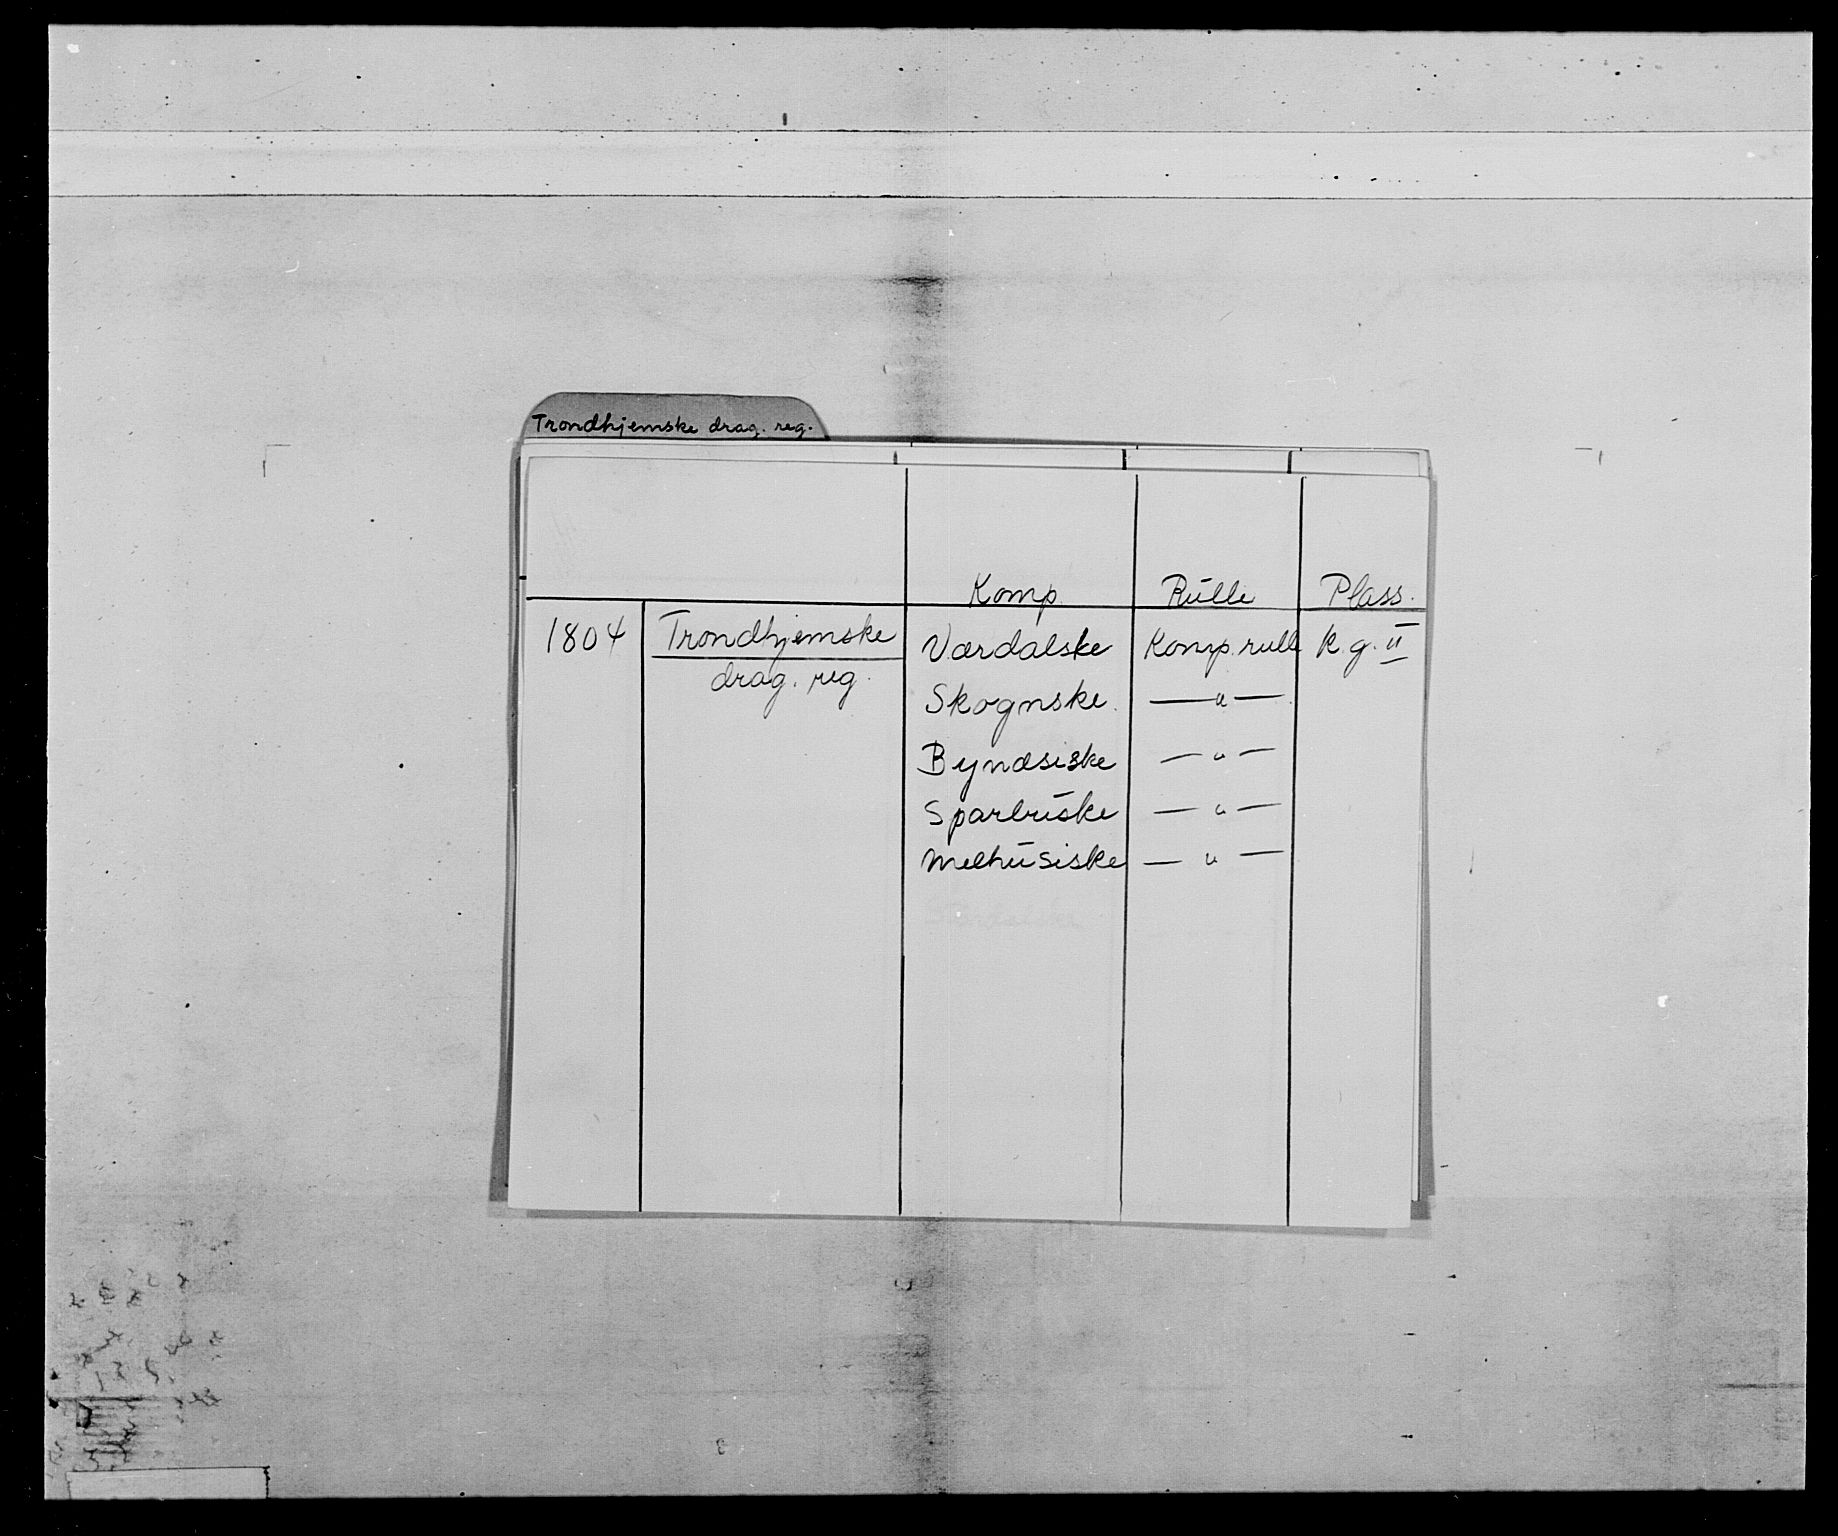 Trondhjemske drag. reg.
Komp. Rulle Plass.
1804 Trondhjemske Værdalske Komp. rulle K. g. II
drag. reg.
Skognske — " —
Bynæsiske — " —
Sparbuske — " —
Melhusiske — " —